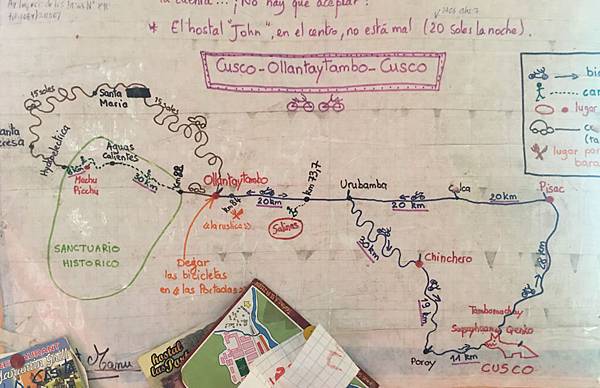 la cuenta... ¡No hay que aceptar!
* El hostal "John", en el centro, no está mal (20 soles la noche).
Cusco-Ollantaytambo-Cusco
15 soles
Santa Maria
15 soles
Hydroelectrica
Aguas Calientes
Machu Picchu
30 km
Km 82
Ollantaytambo
Km 84
"la rustica"
20 km
Km 73,7
Salinas
Urubamba
20 km
Calca
20 km
Pisac
SANCTUARIO HISTORICO
Dejar las bicicletas en "las Portadas"
30 km
Chinchero
19 km
Poroy
11 km
Tambomachay
Qenko
CUSCO
lugar
Manu
hostal
RESTAURANT